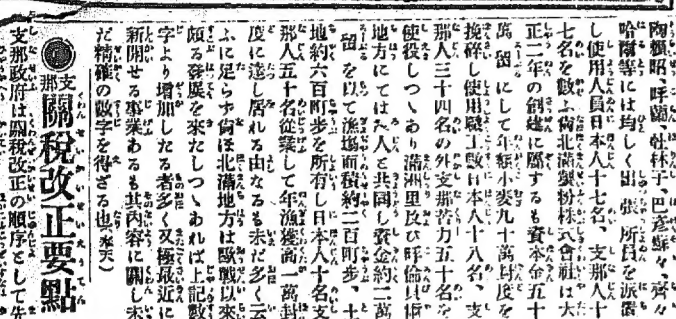 陶頼昭、呼蘭、牡林子、巴彦蘇々、齊々
哈爾等には均しく出張所員を派置
し使用人員日本人十七名、支那人十
七名を數ふ尚北滿製粉株式會社は大
正二年の創建に屬するも資本金五十
萬留にして年額小麥九十萬封度を
挽碎し使用職工數日本人十八名、支
那人三十四名の外支那苦力五十名を
使役しつゝあり滿洲里及び呼倫貝爾
地方にては人と共同し資金約二萬
留を以て漁場面積約二百町步、土
地約六百町步を所有し日本人十名支
那人五十名從業して年漁獲高一萬封
度に達し居れる由なるも未だ多く云
ふに足らず尚ほ北滿地方は歐戰以來
頗る發展を來たしつゝあれば上記數
字より增加したる者多く又極最近に
新開せる事業あるも其內容に關し未
だ精確の數字を得ざる也(奉天)
支那關稅改正要點
支那政府は關稅改正の順序として先